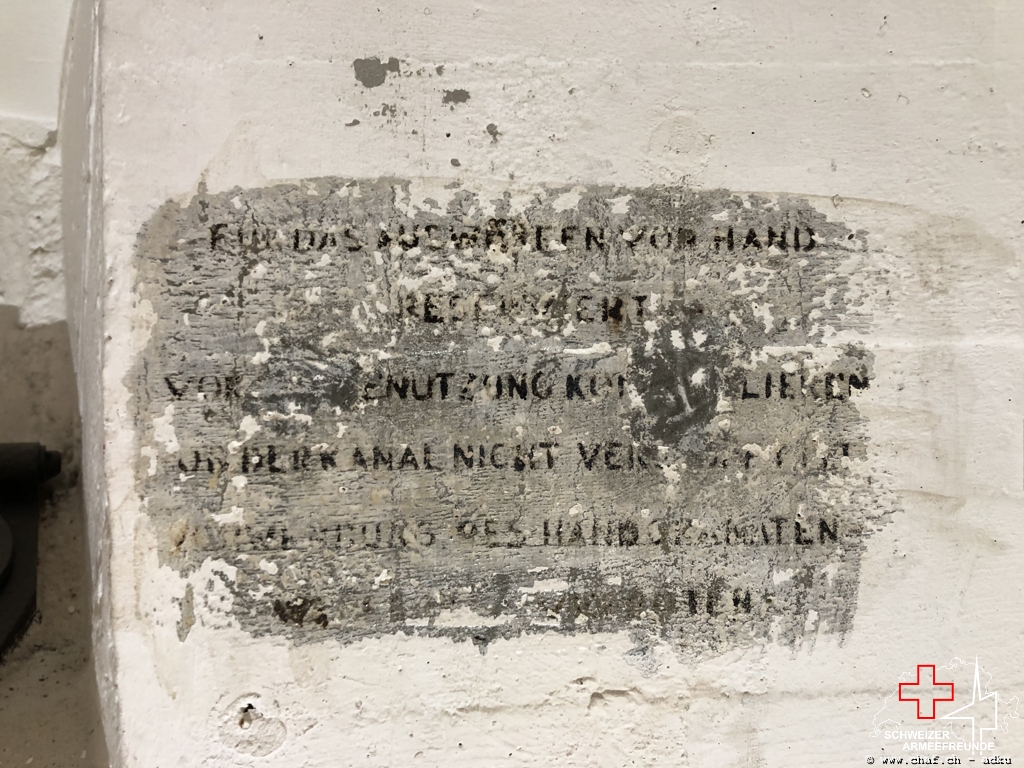 FÜR DAS AUSWERFEN VON HAND
RESERVIERT
VOR BENUTZUNG KONTROLLIEREN
OB DER KANAL NICHT VERSTOPFT IST
DES HANDGRANATEN
SCHWEIZER
ARMEEFREUNDE
© www.chaf.ch - adku